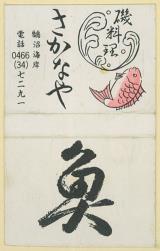 磯料理
さかなや
鵠沼海岸
電話 0466
(34)七二九一
魚